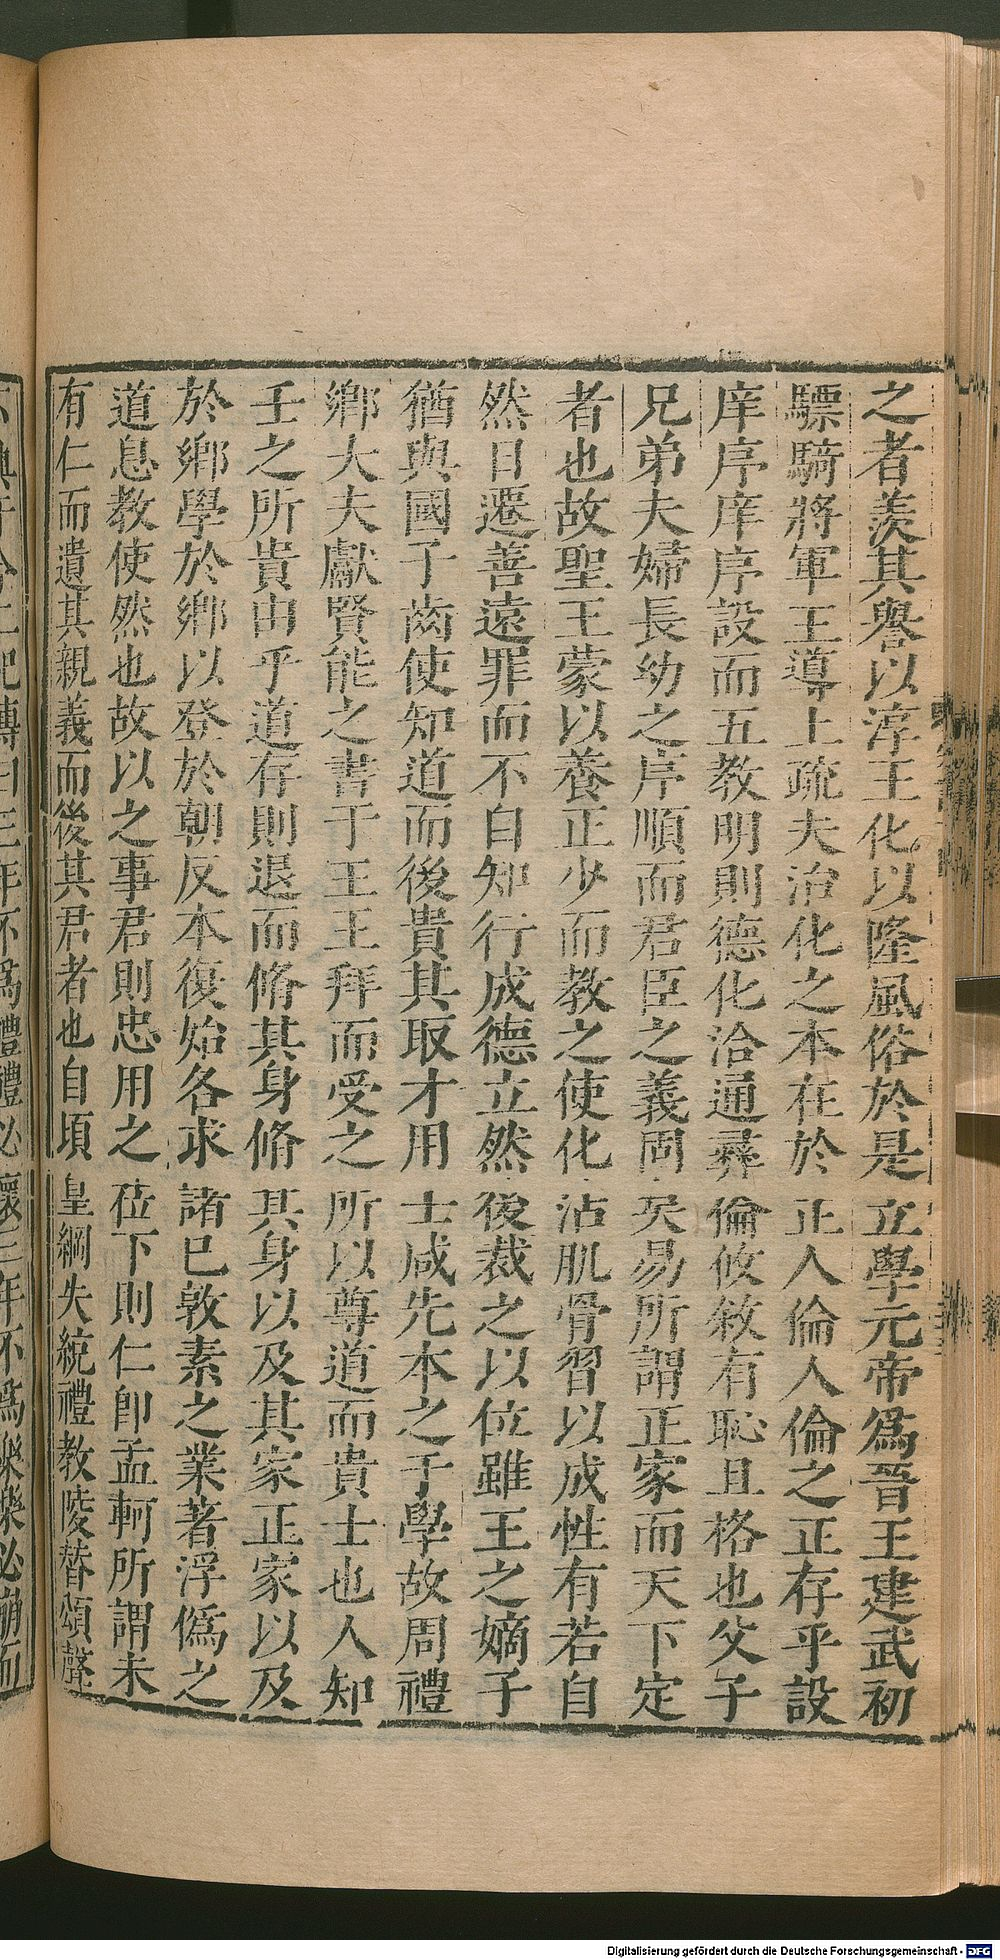 之者羨其譽以淳王化以隆風俗於是立學元帝爲晉王建武初
驃騎將軍王導上疏夫治化之本在於正人倫人倫之正存乎設
庠序庠序設而五教明則德化洽通彛倫攸敘有恥且格也父子
兄弟夫婦長幼之序順而君臣之義固矣易所謂正家而天下定
者也故聖王蒙以養正少而教之使化沾肌骨習以成性有若自
然日遷善遠罪而不自知行成德立然後裁之以位雖王之嫡子
猶與國子齒使知道而後貴其取才用士咸先本之于學故周禮
鄉大夫獻賢能之書于王王拜而受之所以尊道而貴士也人知
士之所貴由乎道存則退而脩其身脩其身以及其家正家以及
於鄉學於鄉以登於朝反本復始各求諸已敦素之業著浮僞之
道息教使然也故以之事君則忠用之莅下則仁卽孟軻所謂未
有仁而遺其親義而後其君者也自頃皇綱失統禮教陵替頌聲
三年不爲禮禮必壞三年不爲樂樂必崩而
Digitalisierung gefördert durch die Deutsche Forschungsgemeinschaft - DFG